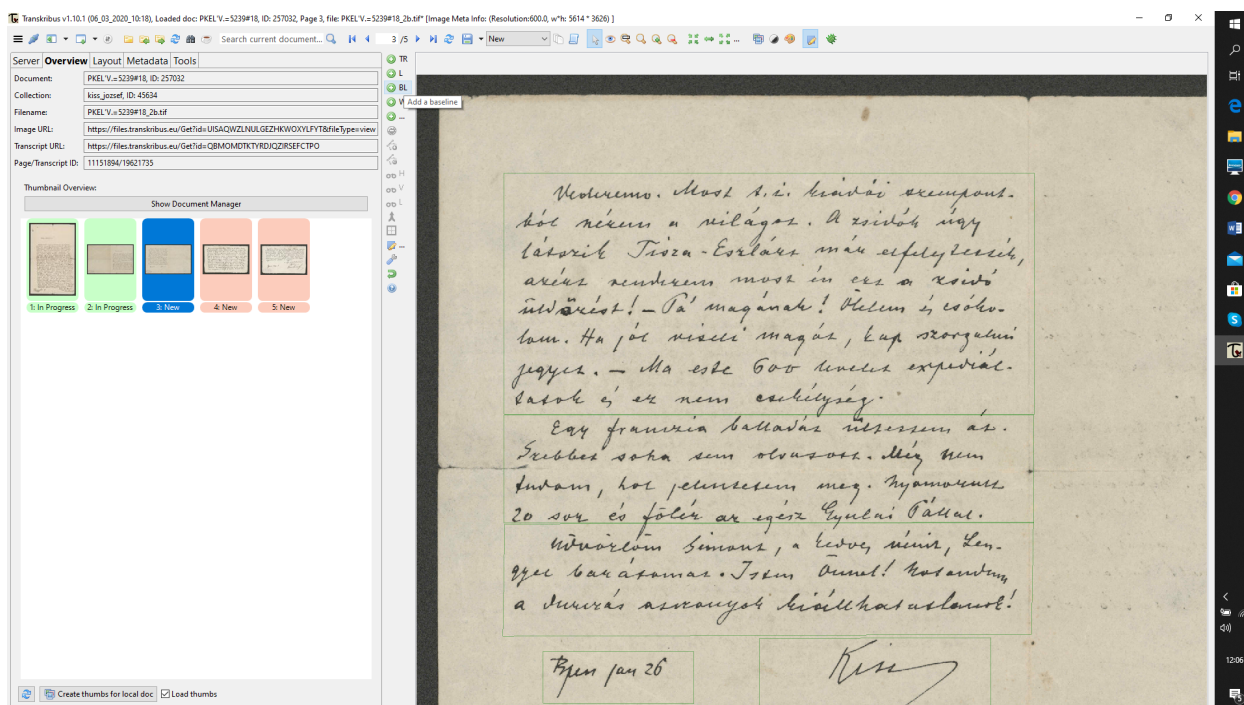 Transkribus v1.10.1 (06_03_2020_10:18), Loaded doc: PKEL'V.=5239#18, ID: 257032, Page 3, file: PKEL'V.=5239#18_2b.tif* [Image Meta Info: (Resolution:600.0, w*h: 5614 * 3626) ]
Search current document... 3 /5 New
Server Overview Layout Metadata Tools
Document: PKEL'V.=5239#18, ID: 257032
Collection: kiss_jozsef, ID: 45634
Filename: PKEL'V.=5239#18_2b.tif
Image URL: https://files.transkribus.eu/Get?id=UISAQWZLNULGEZHKWOXYLFYT&fileType=view
Transcript URL: https://files.transkribus.eu/Get?id=QBMOMDTKTYRDJQZIRSEFCTPO
Page/Transcript ID: 11151894/19621735
Thumbnail Overview:
Show Document Manager
1: In Progress 2: In Progress 3: New 4: New 5: New
Create thumbs for local doc Load thumbs
TR
L
BL
Add a baseline
H
V
L
Vederemo. Most t.i. kiadói szempont-
ból nézem a világot. A zsidók úgy
látszik Tisza-Eszlárt már elfelejtették,
azért rendezem most én ezt a zsidó
üldözést! – Pá magának! Ölelem és csóko-
lom. Ha jól viseli magát, kap szorgalmi
jegyet. – Ma este 600 levelet expediál-
tatok és ez nem csekélység.
Egy franczia balladát ültettem át.
Szebbet soha sem olvasott. Még nem
tudom, hol jelentetem meg. Nyomorult
20 sor és fölér az egész Gyulai Pállal.
Üdvözlöm Simont, a kedves nénit, Len-
gyel barátomat. Isten Önnel!
a asszonyok kiállhatatlanok!
Bpen jan 26
Kiss
12:06